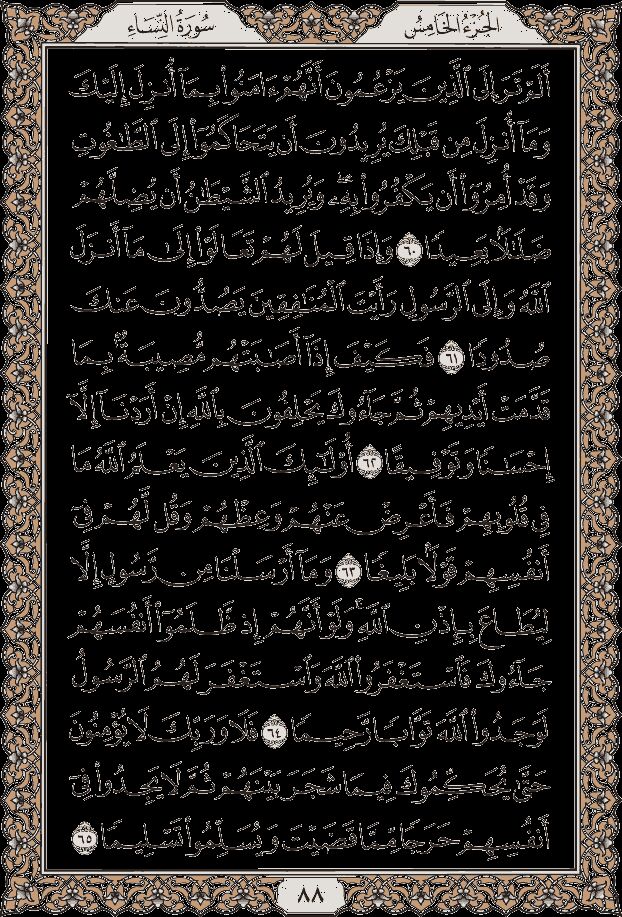 الجُزْءُ الخَامِسُ
سُورَةُ النِّسَاءِ
أَلَمْ تَرَ إِلَى ٱلَّذِينَ يَزْعُمُونَ أَنَّهُمْ ءَامَنُوا۟ بِمَآ أُنزِلَ إِلَيْكَ
وَمَآ أُنزِلَ مِن قَبْلِكَ يُرِيدُونَ أَن يَتَحَاكَمُوٓا۟ إِلَى ٱلطَّـٰغُوتِ
وَقَدْ أُمِرُوٓا۟ أَن يَكْفُرُوا۟ بِهِۦۖ وَيُرِيدُ ٱلشَّيْطَـٰنُ أَن يُضِلَّهُمْ
ضَلَـٰلًۢا بَعِيدًا ٦٠ وَإِذَا قِيلَ لَهُمْ تَعَالَوْا۟ إِلَىٰ مَآ أَنزَلَ
ٱللَّهُ وَإِلَى ٱلرَّسُولِ رَأَيْتَ ٱلْمُنَـٰفِقِينَ يَصُدُّونَ عَنكَ
صُدُودًا ٦١ فَكَيْفَ إِذَآ أَصَـٰبَتْهُم مُّصِيبَةٌۢ بِمَا
قَدَّمَتْ أَيْدِيهِمْ ثُمَّ جَآءُوكَ يَحْلِفُونَ بِٱللَّهِ إِنْ أَرَدْنَآ إِلَّآ
إِحْسَـٰنًا وَتَوْفِيقًا ٦٢ أُو۟لَـٰٓئِكَ ٱلَّذِينَ يَعْلَمُ ٱللَّهُ مَا
فِى قُلُوبِهِمْ فَأَعْرِضْ عَنْهُمْ وَعِظْهُمْ وَقُل لَّهُمْ فِىٓ
أَنفُسِهِمْ قَوْلًۢا بَلِيغًا ٦٣ وَمَآ أَرْسَلْنَا مِن رَّسُولٍ إِلَّا
لِيُطَاعَ بِإِذْنِ ٱللَّهِۚ وَلَوْ أَنَّهُمْ إِذ ظَّلَمُوٓا۟ أَنفُسَهُمْ
جَآءُوكَ فَٱسْتَغْفَرُوا۟ ٱللَّهَ وَٱسْتَغْفَرَ لَهُمُ ٱلرَّسُولُ
لَوَجَدُوا۟ ٱللَّهَ تَوَّابًا رَّحِيمًا ٦٤ فَلَا وَرَبِّكَ لَا يُؤْمِنُونَ
حَتَّىٰ يُحَكِّمُوكَ فِيمَا شَجَرَ بَيْنَهُمْ ثُمَّ لَا يَجِدُوا۟ فِىٓ
أَنفُسِهِمْ حَرَجًا مِّمَّا قَضَيْتَ وَيُسَلِّمُوا۟ تَسْلِيمًا ٦٥
٨٨